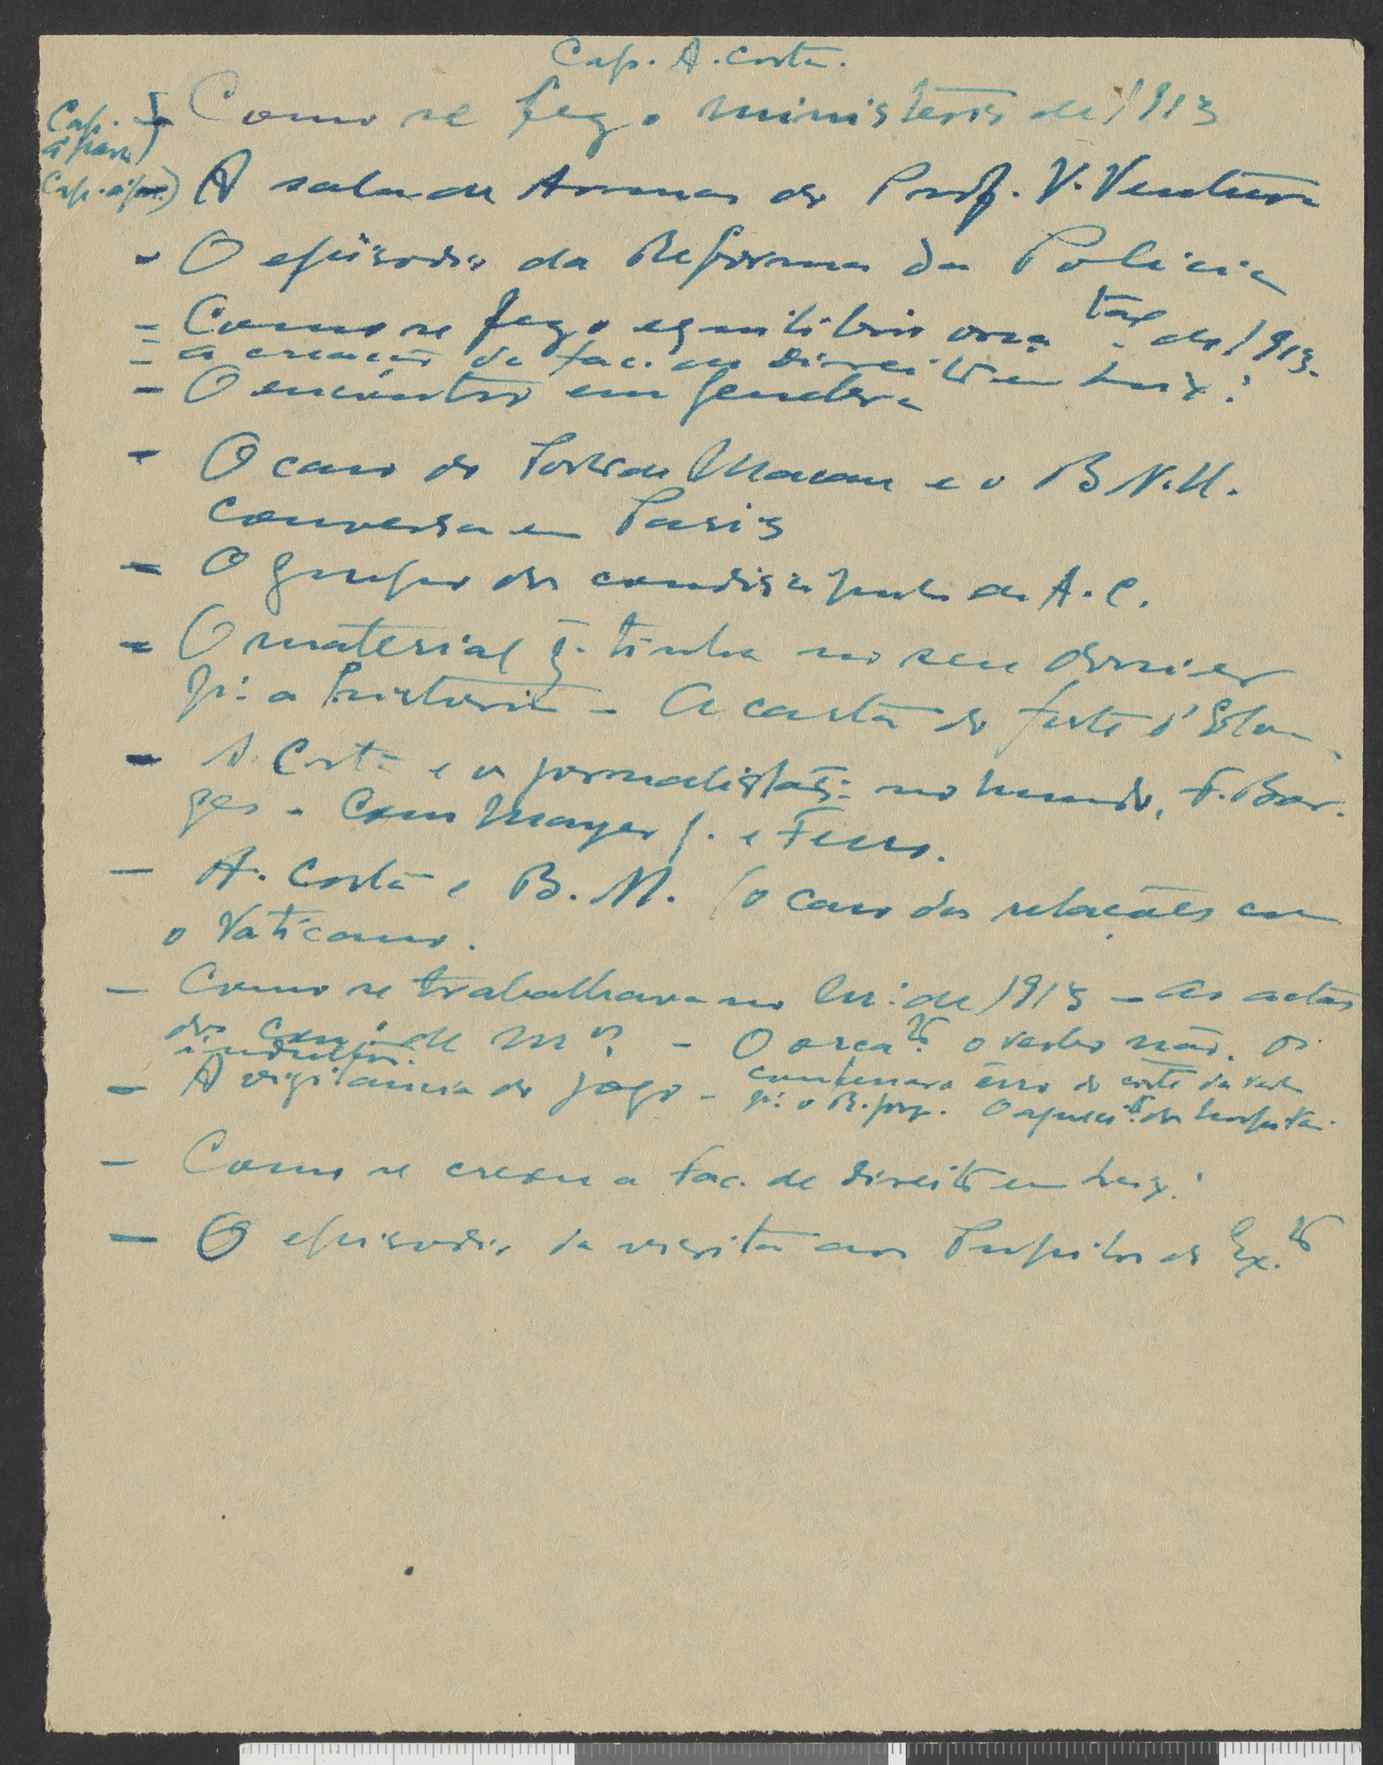 Cap. A. Costa.
Cap. à parte) Como se fez o ministerio de 1913
Cap. à par.) A sala de Armas do Prof. V. Ventura
- O episodio da Reforma da Policia
- Como se fez o equilibrio orça.tal de 1913.
- A creação da Fac. de Direito em Lux.ª
- O encontro em Gendera
- O caso do Porto de Macau e o B. N. U.
Conversa em Paris
- O grupo dos condiscipulos de A. C.
- O material q. tinha no seu dossier
p.ª a historia - A carta do
- A. Costa e o jornalista: no Mundo, F. Bor-
ges - Com Mayer G. e Ferro.
- A. Costa e B. M. (o caso das relações com
o Vaticano.
- Como se trabalhava no Min.º de 1913 - As actas
dos Cons. de M.os - O orca.to o verbo não. Os
- A vigilancia do jogo - erro do corte da verba
p.ª o B. O dos Hospitai
- Como se creou a Fac. de Direito em Lux.ª
- O episodio da visita aos Pupilos do Ex.to